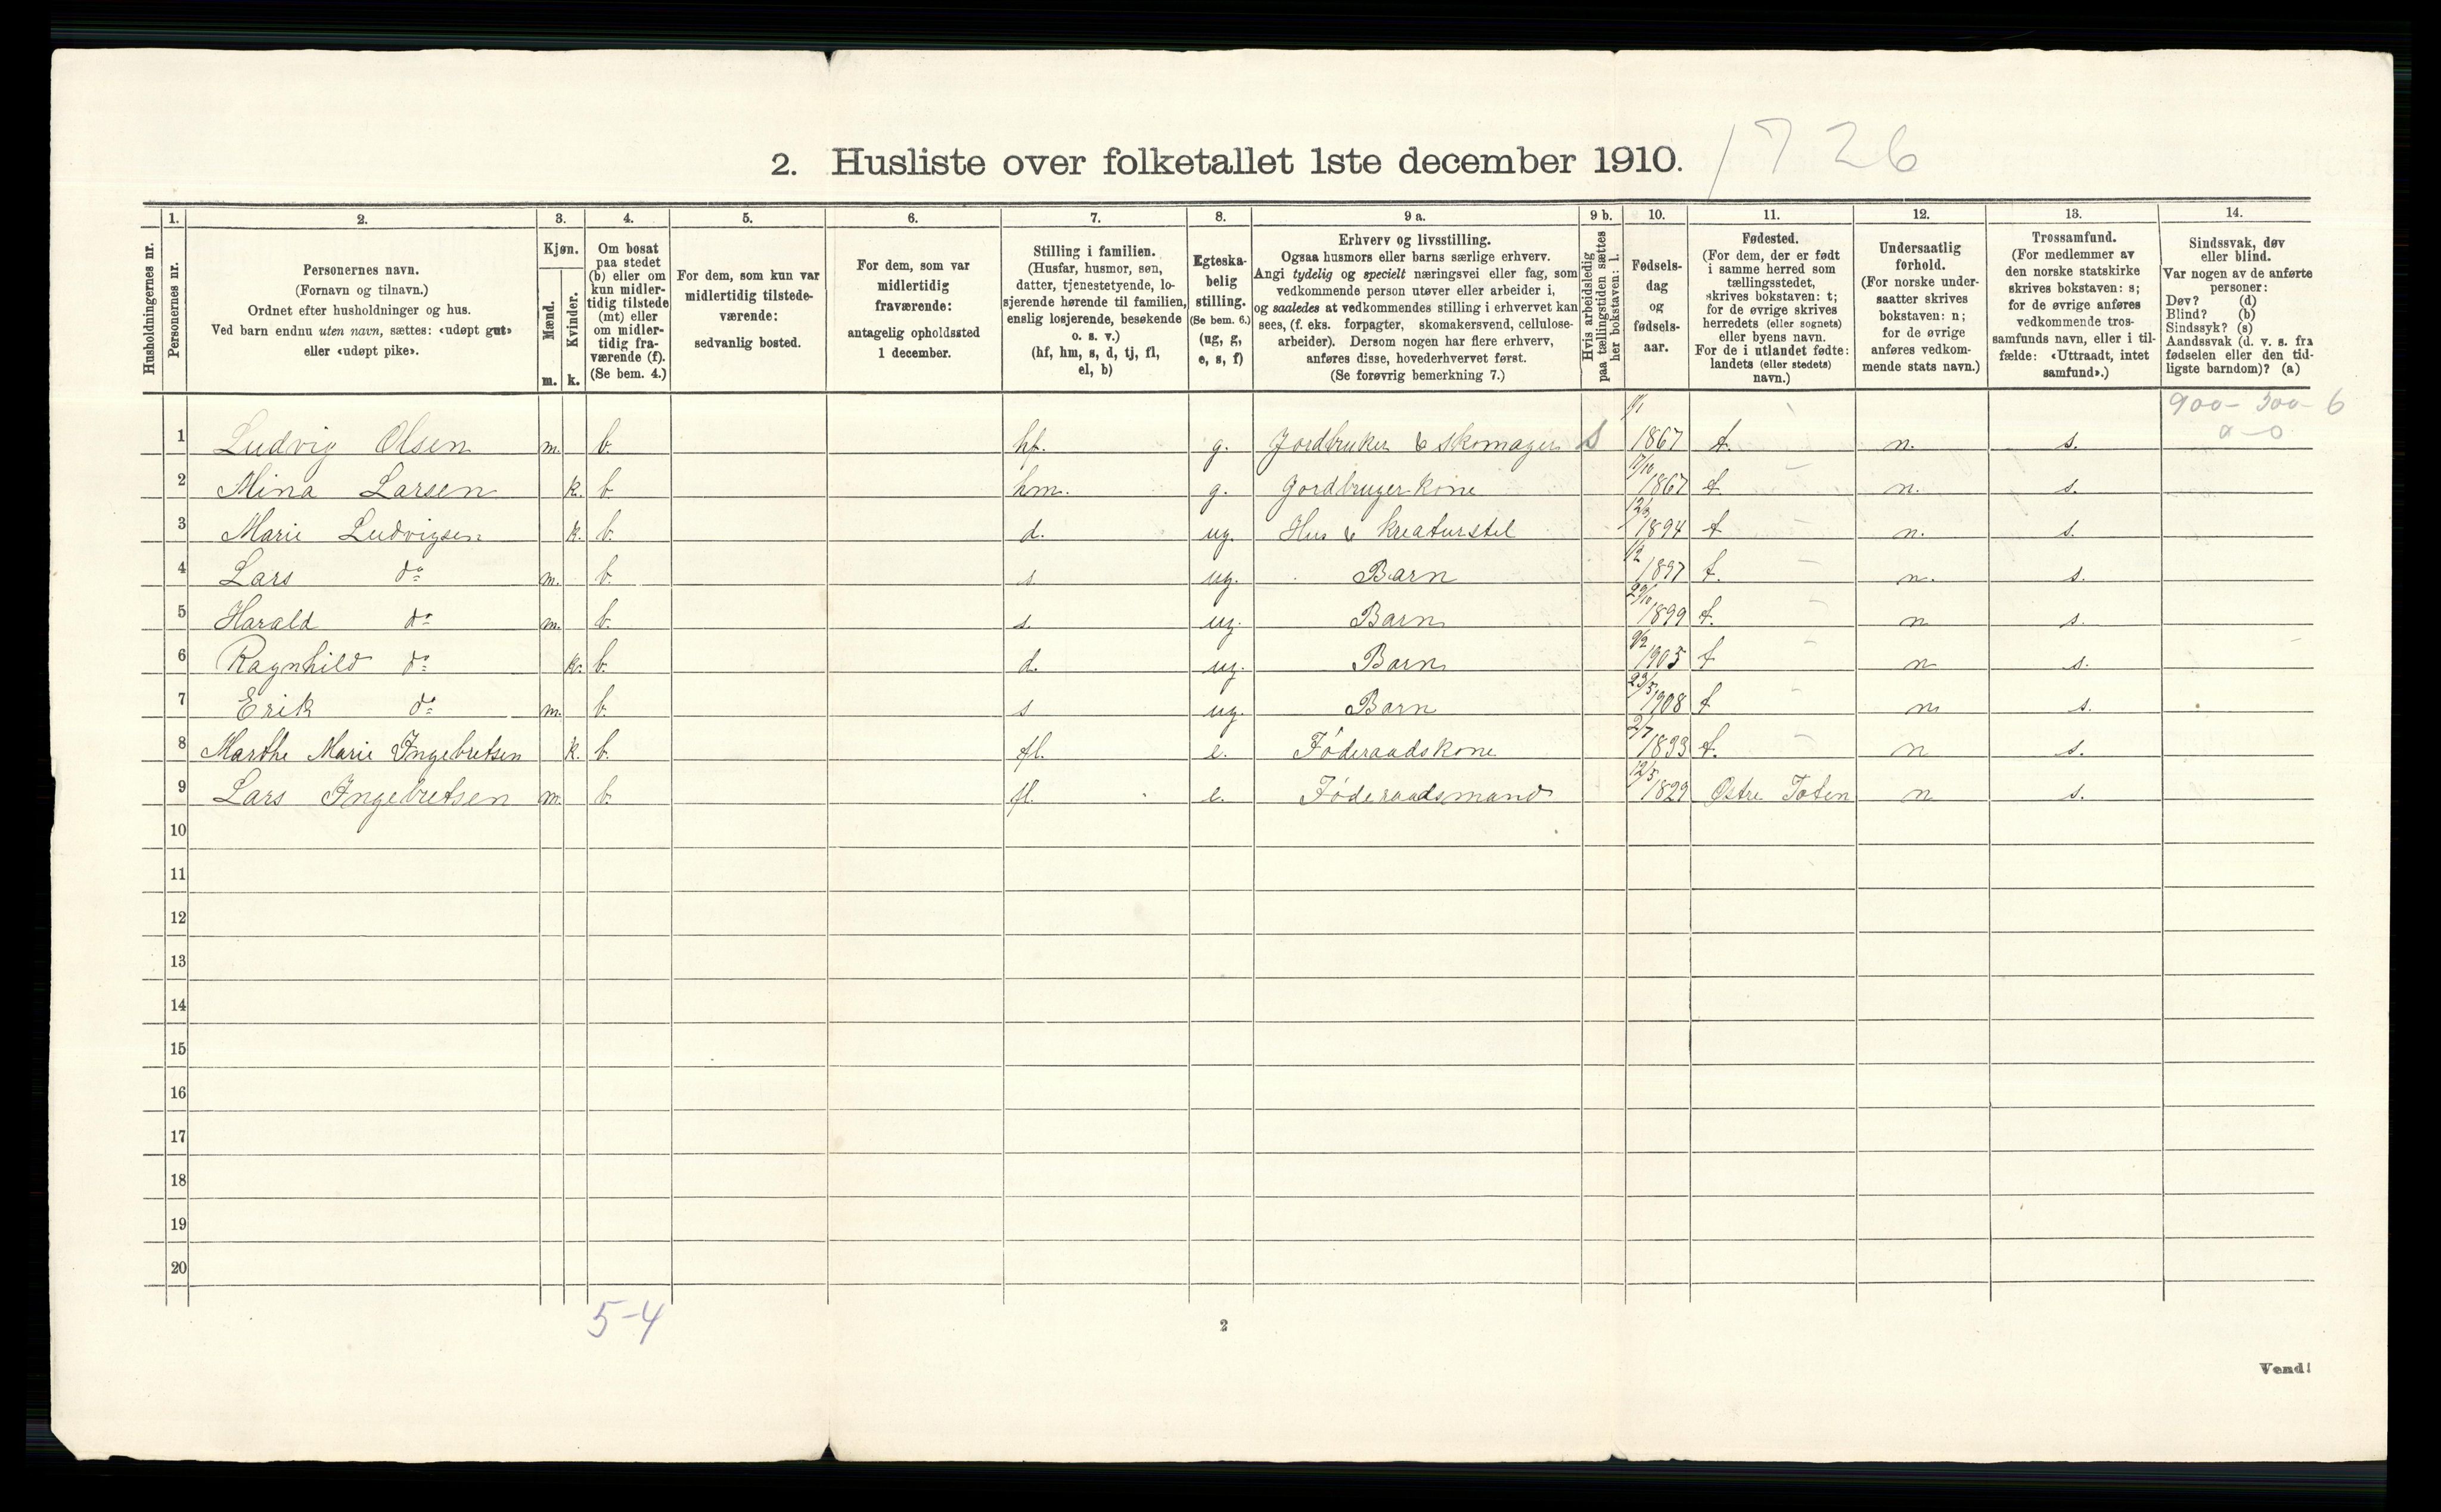 2. Husliste over folketallet 1ste december 1910. 1726
1. 2. 3. 4. 5. 6. 7. 8. 9 a. 9 b. 10. 11. 12. 13. 14.
Husholdningernes nr.
Personernes nr.
Personernes navn.
(Fornavn og tilnavn.)
Ordnet efter husholdninger og hus.
Ved barn endnu uten navn, sættes: «udøpt gut»
eller «udøpt pike».
Kjøn.
Mænd.
Kvinder.
m. k.
Om bosat
paa stedet
(b) eller om
kun midler-
tidig tilstede
(mt) eller
om midler-
tidig fra-
værende (f).
(Se bem. 4.)
For dem, som kun var
midlertidig tilstede-
værende:
sedvanlig bosted.
For dem, som var
midlertidig
fraværende:
antagelig opholdssted
1 december.
Stilling i familien.
(Husfar, husmor, søn,
datter, tjenestetyende, lo-
sjerende hørende til familien,
enslig losjerende, besøkende
o. s. v.)
(hf, hm, s, d, tj, fl,
el, b)
Egteska-
belig
stilling.
(Se bem. 6.)
(ug, g,
e, s, f)
Erhverv og livsstilling.
Ogsaa husmors eller barns særlige erhverv.
Angi tydelig og specielt næringsvei eller fag, som
vedkommende person utøver eller arbeider i,
og saaledes at vedkommendes stilling i erhvervet kan
sees, (f. eks. forpagter, skomakersvend, cellulose-
arbeider). Dersom nogen har flere erhverv,
anføres disse, hovederhvervet først.
(Se forøvrig bemerkning 7.)
Hvis arbeidsledig
paa tællingstiden sættes
her bokstaven: l.
Fødsels-
dag
og
fødsels-
aar.
Fødested.
(For dem, der er født
i samme herred som
tællingsstedet,
skrives bokstaven: t;
for de øvrige skrives
herredets (eller sognets)
eller byens navn.
For de i utlandet fødte:
landets (eller stedets)
navn.)
Undersaatlig
forhold.
(For norske under-
saatter skrives
bokstaven: n;
for de øvrige
anføres vedkom-
mende stats navn.)
Trossamfund.
(For medlemmer av
den norske statskirke
skrives bokstaven: s;
for de øvrige anføres
vedkommende tros-
samfunds navn, eller i til-
fælde: «Uttraadt, intet
samfund».)
Sindssvak, døv
eller blind.
Var nogen av de anførte
personer:
Døv? (d)
Blind? (b)
Sindssyk? (s)
Aandssvak (d. v. s. fra
fødselen eller den tid-
ligste barndom)? (a)
900- 300- 6
0-0
1 Ludvig Olsen m. b. hf. g. Jordbruker & skomager S 1867 t. n. s.
2 Mina Larsen k. b. hm. g. Gordbruger kone 17/10 1867 t n. s.
3 Marie Ludvigsen k. b. d. ug. Hus & kreaturstel 12/3 1894 t n. s.
4 Lars do m. b. s ug. Barn 1/2 1897 t. n. s.
5 Harald do m. b. s. ug. Barn 29/10 1899 t. n s.
6 Ragnhild do k. b. d. ug. Barn 9/2 1905 t n s.
7 Erik do m. b. s ug. Barn 23/5 1908 t n s.
8 Marthe Marie Ingebretsen k. b. fl. e. Föderaadskone 2/7 1833 t. n s.
9 Lars Ingebretsen m. b. fl. e. Föderaadsmand 12/5 1829 Østre Toten n s.
10
11
12
13
14
15
16
17
18
19
20
5-4
2
Vend!